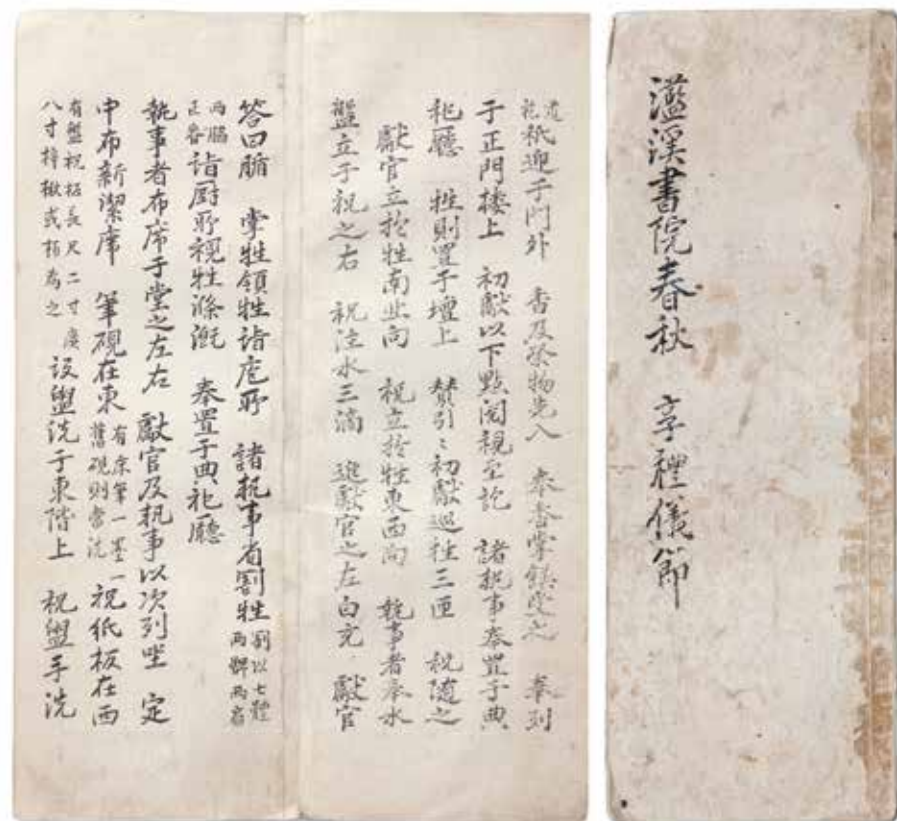 濫溪書院春秋 享禮儀節
祗迎于門外 香及祭物先入 奉香掌饌受之 奉到
于正門樓上 初獻以下點閱親空訖 諸執事奉置于典
祀廳 牲則置于壇上 贊引引初獻巡牲三匝 祝隨之
獻官立於牲南北向 祝立於牲東西向 執事者奉水
盤立于祝之右 祝注水三滴 進獻官之左白充 獻官
答曰腯 掌牲領牲詣庖所 諸執事者割牲 割以七體
兩髀兩肩
兩脇
正脊 詣廚所視牲滌漑 奉置于典祀廳
執事者布席于堂之左右 獻官及執事以次列坐 定
中布新潔席 筆硯在東 有床筆一墨一
舊硯則常洗 祝紙板在西
有盤祝板長尺二寸廣
八寸梓楸或栢為之 設盥洗于東階上 祝盥手洗